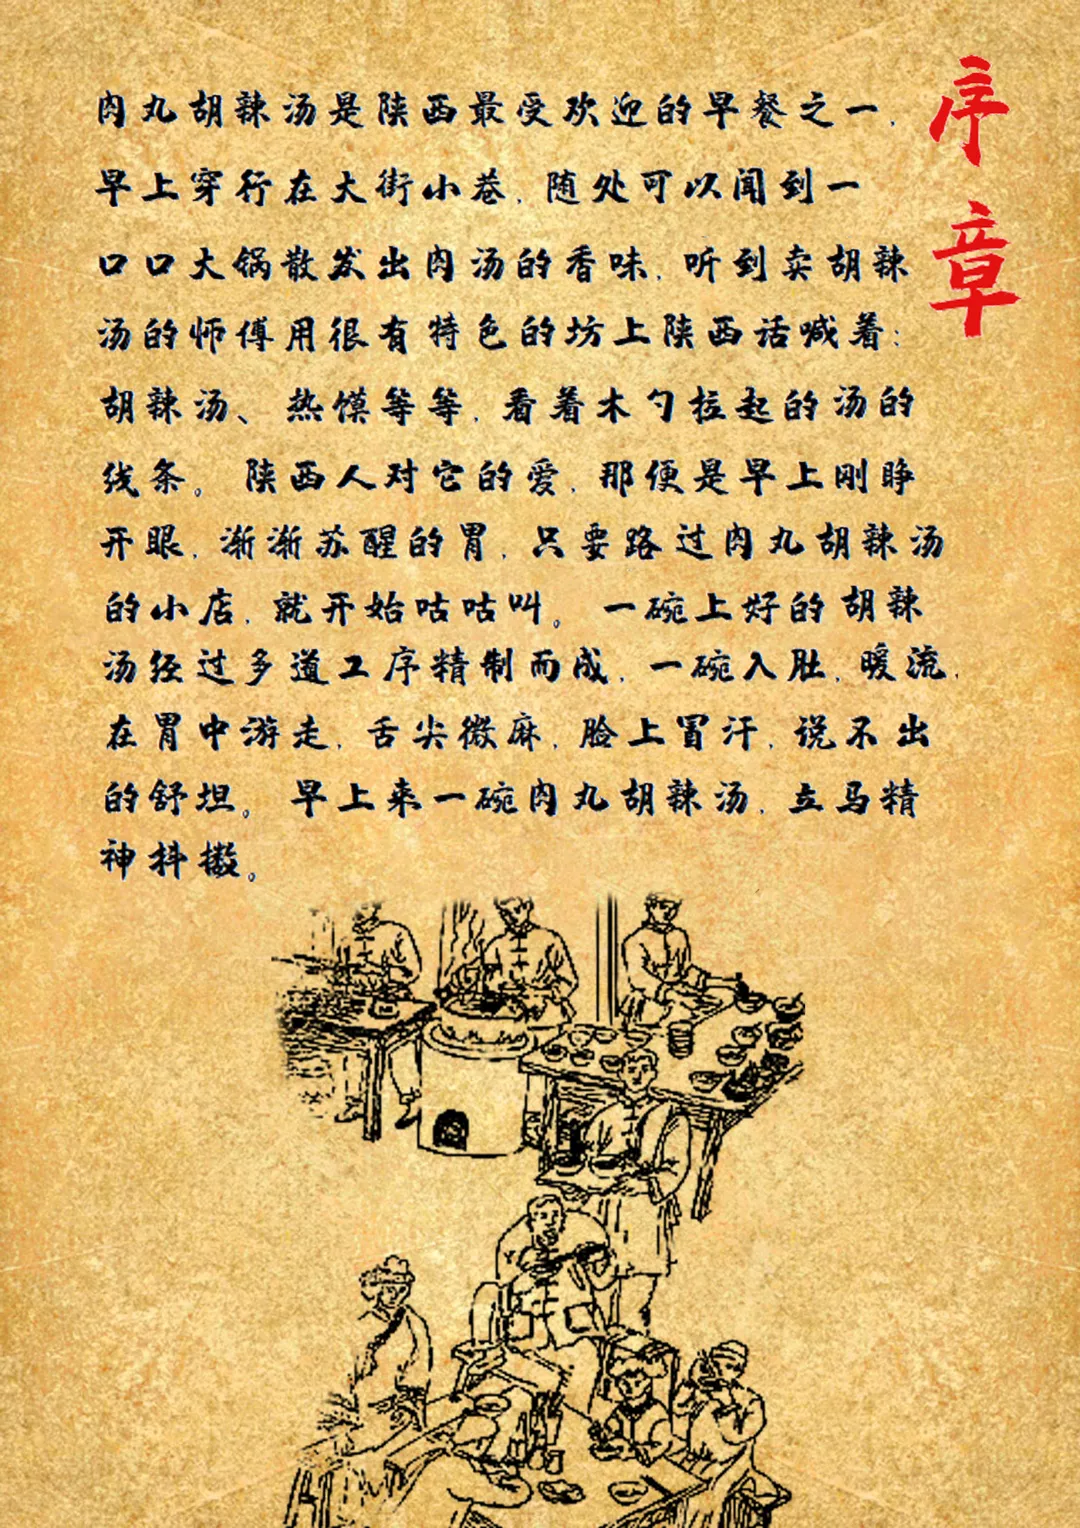 序章
肉丸胡辣汤是陕西最受欢迎的早餐之一，
早上穿行在大街小巷，随处可以闻到一
口口大锅散发出肉汤的香味，听到卖胡辣
汤的师傅用很有特色的坊上陕西话喊着：
胡辣汤、热馍等等，看着木勺拉起的汤的
线条。陕西人对它的爱，那便是早上刚睁
开眼，渐渐苏醒的胃，只要路过肉丸胡辣汤
的小店，就开始咕咕叫。一碗上好的胡辣
汤经过多道工序精制而成，一碗入肚，暖流，
在胃中游走，舌尖微麻，脸上冒汗，说不出
的舒坦。早上来一碗肉丸胡辣汤，立马精
神抖擞。